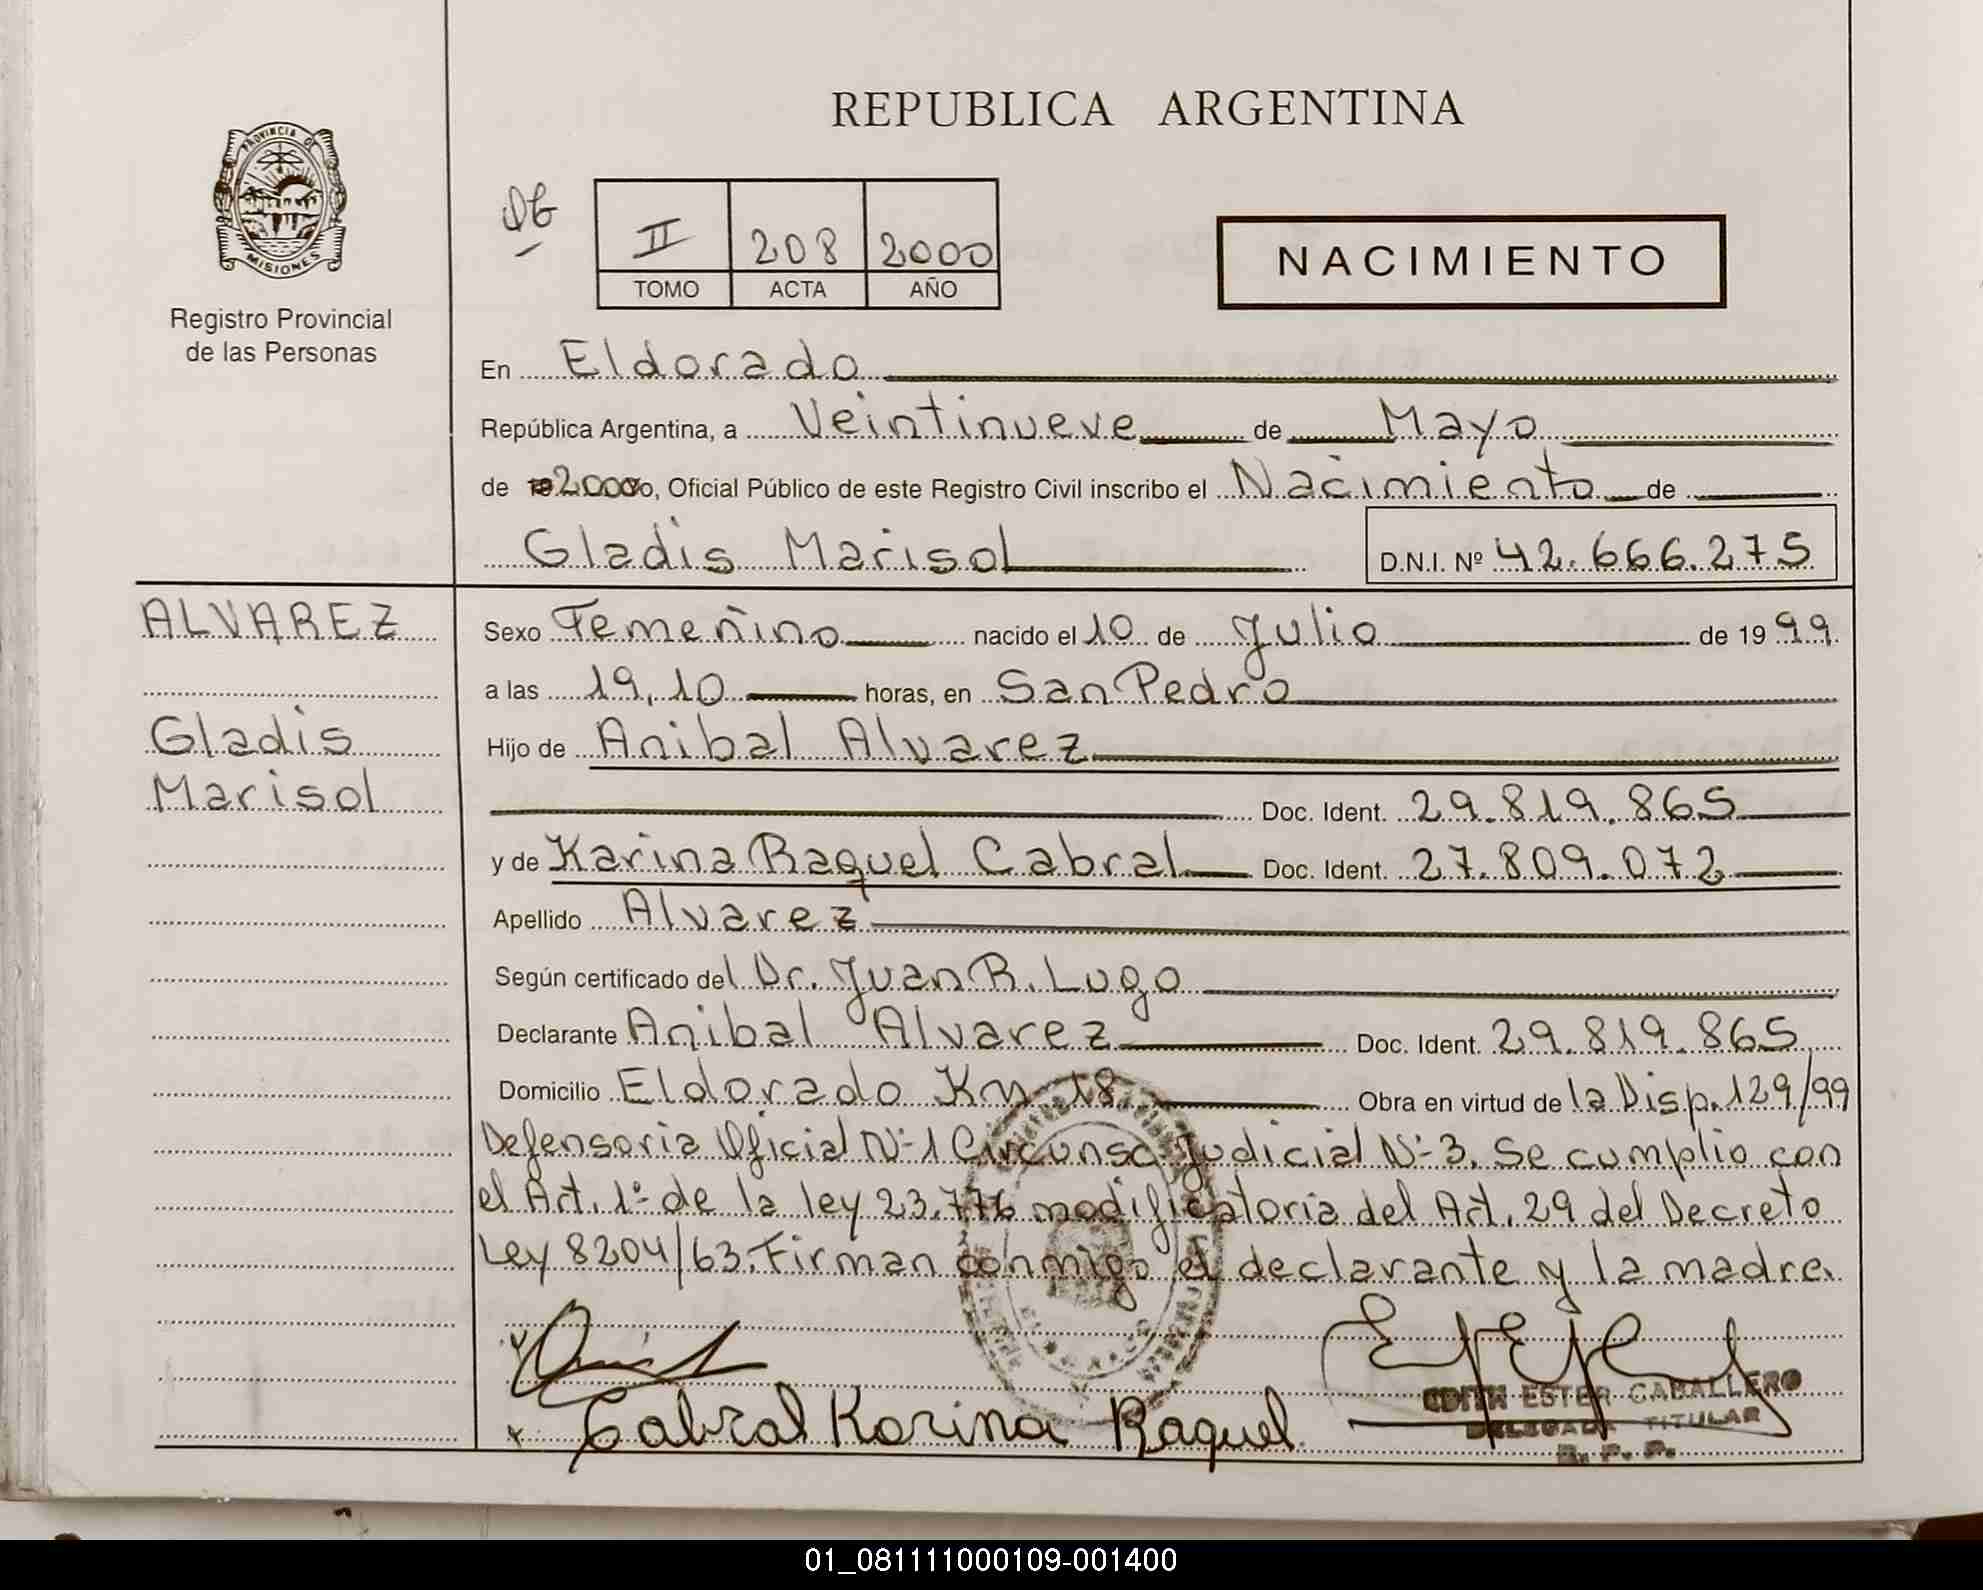 REPUBLICA ARGENTINA
PROVINCIA DE
MISIONES
Registro Provincial
de las Personas
II 208 2000
TOMO ACTA AÑO
NACIMIENTO
En Eldorado
República Argentina, a Veintinueve de Mayo
de 2000, Oficial Público de este Registro Civil inscribo el Nacimiento de
Gladis Marisol D.N.I. Nº 42.666.275
ALVAREZ
Gladis
Marisol
Sexo Femeñino nacido el 10 de Julio de 1999
a las 19,10 horas, en San Pedro
Hijo de Anibal Alvarez
Doc. Ident. 29.819.865
y de Karina Raquel Cabral Doc. Ident. 27.809.072
Apellido Alvarez
Según certificado del Dr. Juan R. Lugo
Declarante Anibal Alvarez Doc. Ident. 29.819.865
Domicilio Eldorado Km 18 Obra en virtud de la Disp. 129/99
Defensoria Oficial Nº 1 Circunsc. Judicial Nº 3. Se cumplio con
el Art. 1º de la ley 23.776 modificatoria del Art. 29 del Decreto
Ley 8204/63. Firman conmigo el declarante y la madre.
x
x Cabral Karina Raquel
EDITH ESTER CABALLERO
DELEGADA TITULAR
R. P. P.
01_081111000109-001400